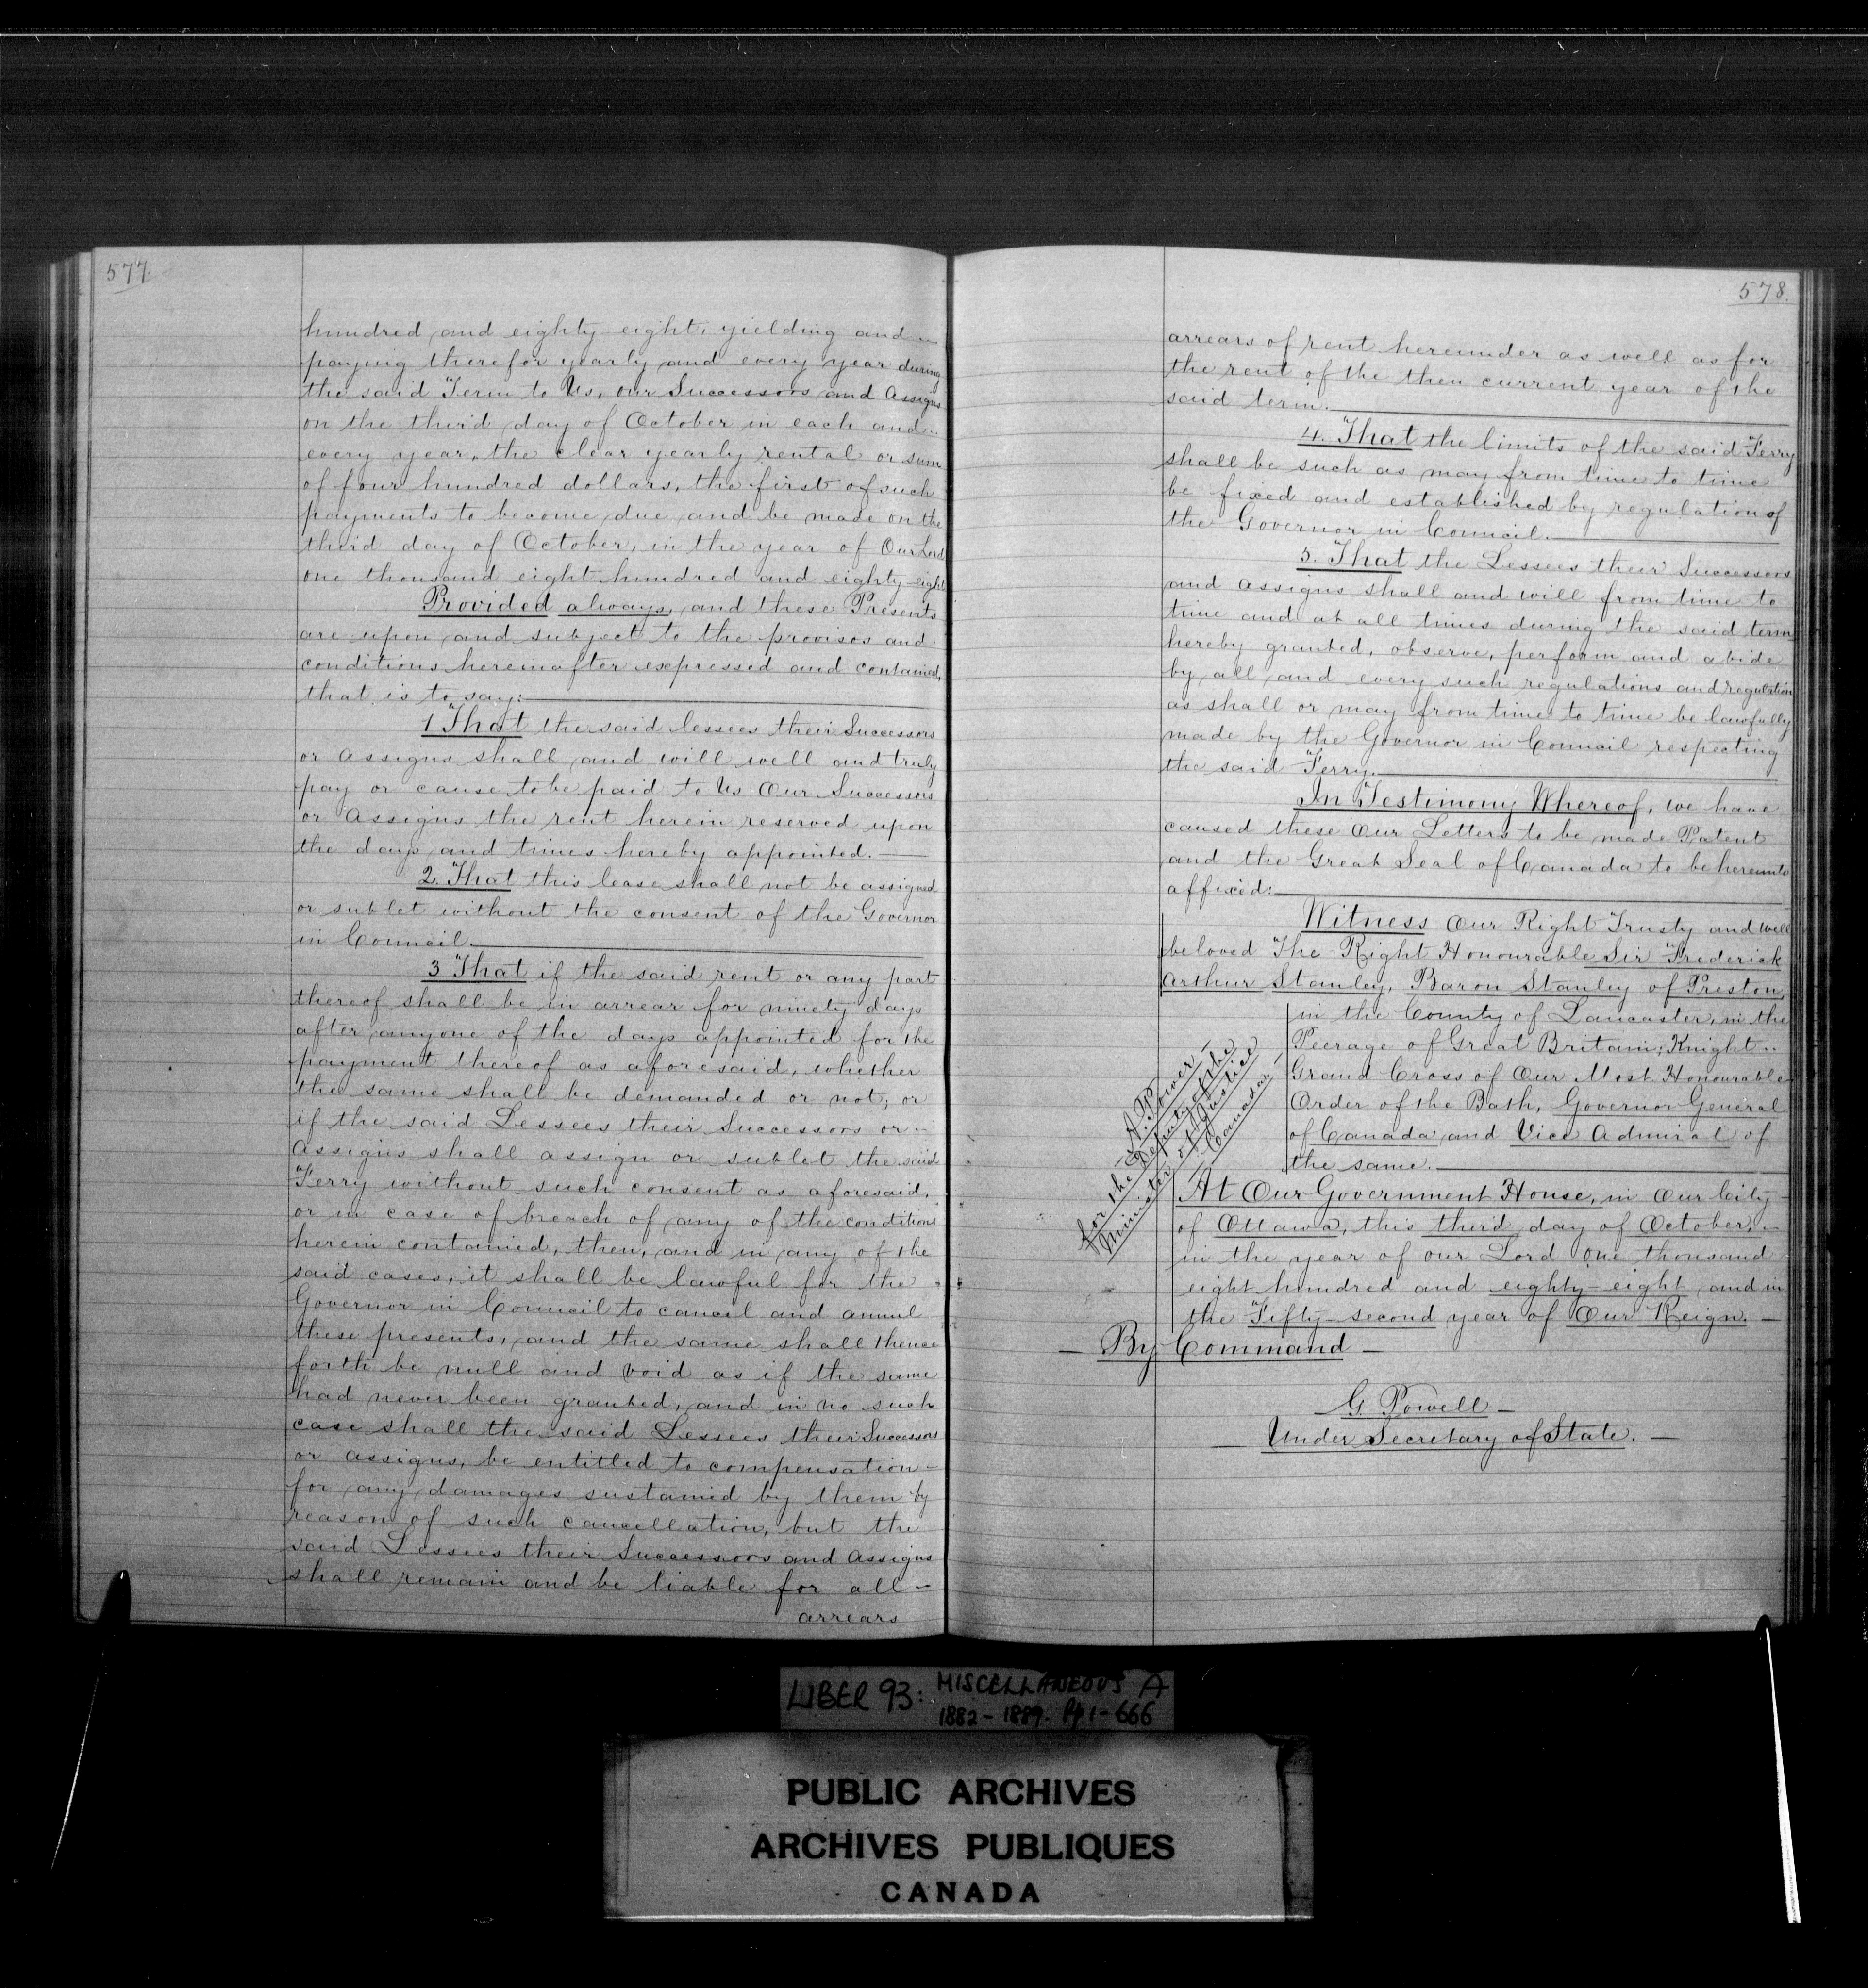 577.
hundred and eighty eight, yielding and
paying therefor yearly and every year during
the said Term to Us, our Successors and Assigns
on the third day of October in each and
every year, the clear yearly rental or sum
of four hundred dollars, the first of such
payments to become due and be made on the
third day of October, in the year of Our Lord
one thousand eight hundred and eighty-eight
Provided always, and these Presents
are upon and subject to the provisos and
conditions hereinafter expressed and contained,
that is to say:
1 That the said lessees their Successors
or assigns shall and will well and truly
pay or cause to be paid to Us Our Successors
or Assigns the rent herein reserved upon
the days and times hereby appointed.
2. That this lease shall not be assigned
or sublet without the consent of the Governor
in Council.
3 That if the said rent or any part
thereof shall be in arrear for ninety days
after anyone of the days appointed for the
payment thereof as aforesaid, whether
the same shall be demanded or not; or
if the said Lessees their Successors or
Assigns shall assign or sublet the said
Ferry without such consent as aforesaid,
or in case of breach of any of the conditions
herein contained, then, and in any of the
said cases, it shall be lawful for the
Governor in Council to cancel and annul
these presents, and the same shall thence
forth be null and void as if the same
had never been granted, and in no such
case shall the said Lessees their Successors
or assigns, be entitled to compensation
for any damages sustained by them by
reason of such cancellation, but the
said Lessees their Successors and assigns
shall remain and be liable for all
arrears
578.
arrears of rent hereunder as well as for
the rent of the then current year of the
said term.
4. That the limits of the said Ferry
shall be such as may from time to time
be fixed and established by regulation of
the Governor in Council.
5. That the Lessees their Successors
and assigns shall and will from time to
time and at all times during the said term
hereby granted, observe, perform and abide
by all and every such regulations and regulation
as shall or may from time to time be lawfully
made by the Governor in Council respecting
the said Ferry.
In Testimony Whereof, we have
caused these our Letters to be made Patent
and the Great Seal of Canada to be hereunto
affixed:
Witness Our Right Trusty and well
beloved The Right Honourable Sir Frederick
Arthur Stanley, Baron Stanley of Preston,
in the County of Lancaster, in the
Peerage of Great Britain; Knight
Grand Cross of Our Most Honourable
Order of the Bath, Governor General
of Canada and Vice Admiral of
the same.
A. Power
for the Deputy of the
Minister of Justice
Canada.
At Our Government House, in Our City
of Ottawa, this third day of October,
in the year of our Lord one thousand
eight hundred and eighty-eight and in
the Fifty-second year of Our Reign.
By Command
G. Powell
Under Secretary of State.
LIBER 93: MISCELLANEOUS A
1882-1889. Pp 1-666
PUBLIC ARCHIVES
ARCHIVES PUBLIQUES
CANADA